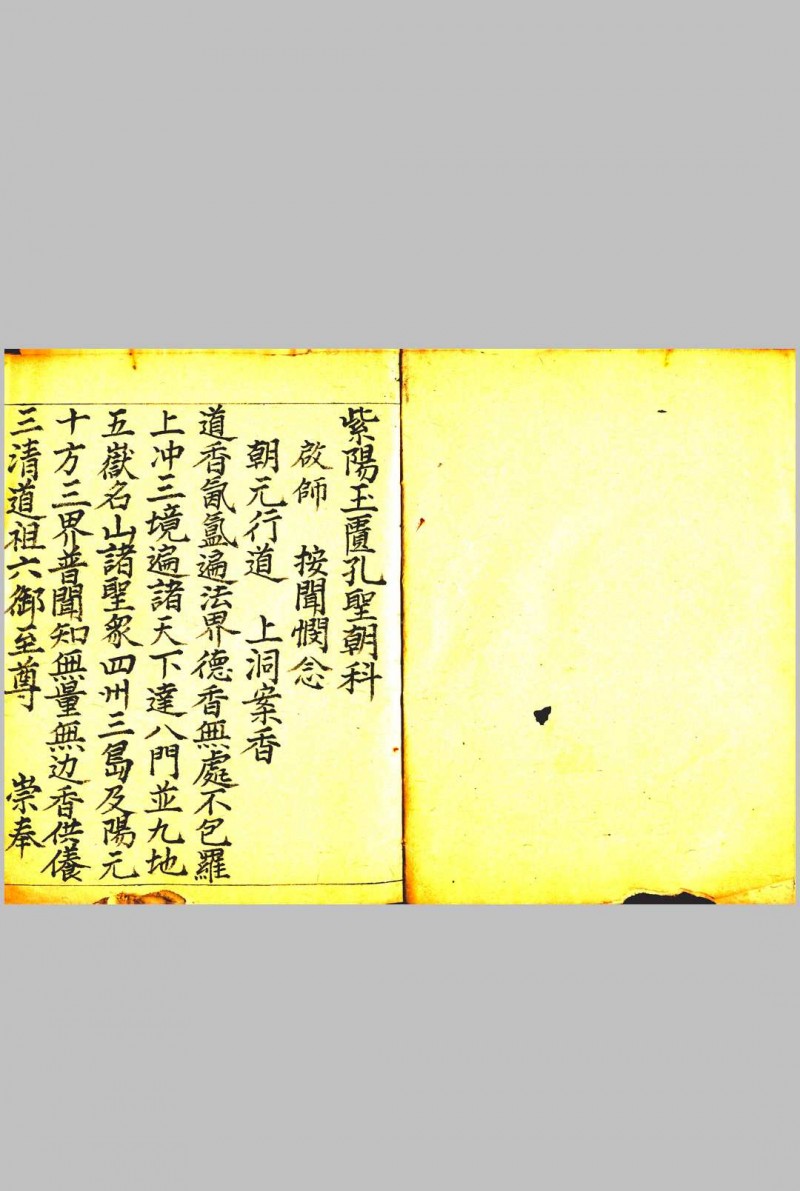 紫陽玉匱孔聖朝科
啟師 按聞憫念
朝元行道 上洞案香
道香氤氳遍法界德香無處不包羅
上冲三境遍諸天下達八門並九地
五嶽名山諸聖眾四州三島及陽元
十方三界普聞知無量無边香供儀
三清道祖六御至尊 崇奉